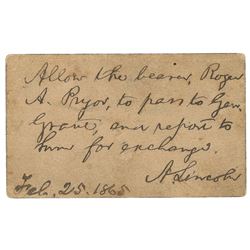 Allow the bearer, Roger
A. Pryor, to pass to Gen.
Grant, and report to
him for exchange.
A Lincoln
Feb. 25. 1865